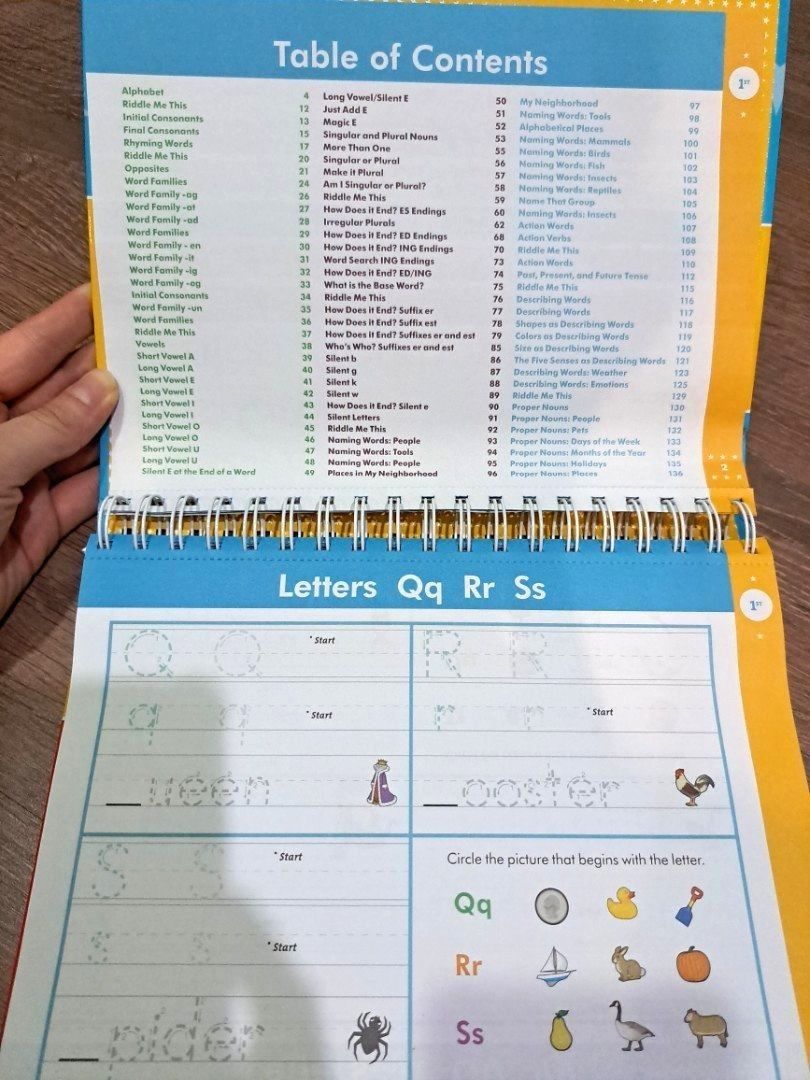 Table of Contents
1ST
Alphabet 4
Riddle Me This 12
Initial Consonants 13
Final Consonants 15
Rhyming Words 17
Riddle Me This 20
Opposites 21
Word Families 24
Word Family -ag 26
Word Family -at 27
Word Family -ad 28
Word Families 29
Word Family - en 30
Word Family -it 31
Word Family -ig 32
Word Family -og 33
Initial Consonants 34
Word Family -un 35
Word Families 36
Riddle Me This 37
Vowels 38
Short Vowel A 39
Long Vowel A 40
Short Vowel E 41
Long Vowel E 42
Short Vowel I 43
Long Vowel I 44
Short Vowel O 45
Long Vowel O 46
Short Vowel U 47
Long Vowel U 48
Silent E at the End of a Word 49
Long Vowel/Silent E 50
Just Add E 51
Magic E 52
Singular and Plural Nouns 53
More Than One 55
Singular or Plural 56
Make it Plural 57
Am I Singular or Plural? 58
Riddle Me This 59
How Does it End? ES Endings 60
Irregular Plurals 62
How Does it End? ED Endings 68
How Does it End? ING Endings 70
Word Search ING Endings 73
How Does it End? ED/ING 74
What is the Base Word? 75
Riddle Me This 76
How Does it End? Suffix er 77
How Does it End? Suffix est 78
How Does it End? Suffixes er and est 79
Who's Who? Suffixes er and est 85
Silent b 86
Silent g 87
Silent k 88
Silent w 89
How Does it End? Silent e 90
Silent Letters 91
Riddle Me This 92
Naming Words: People 93
Naming Words: Tools 94
Naming Words: People 95
Places in My Neighborhood 96
My Neighborhood 97
Naming Words: Tools 98
Alphabetical Places 99
Naming Words: Mammals 100
Naming Words: Birds 101
Naming Words: Fish 102
Naming Words: Insects 103
Naming Words: Reptiles 104
Name That Group 105
Naming Words: Insects 106
Action Words 107
Action Verbs 108
Riddle Me This 109
Action Words 110
Past, Present, and Future Tense 112
Riddle Me This 115
Describing Words 116
Describing Words 117
Shapes as Describing Words 118
Colors as Describing Words 119
Size as Describing Words 120
The Five Senses as Describing Words 121
Describing Words: Weather 123
Describing Words: Emotions 125
Riddle Me This 129
Proper Nouns 130
Proper Nouns: People 131
Proper Nouns: Pets 132
Proper Nouns: Days of the Week 133
Proper Nouns: Months of the Year 134
Proper Nouns: Holidays 135
Proper Nouns: Places 136
2
Letters Qq Rr Ss
1ST
Q Q Start
q q Start
__ueen
R R
r r Start
__ooster
S S Start
s s Start
__pider
Circle the picture that begins with the letter.
Qq
Rr
Ss